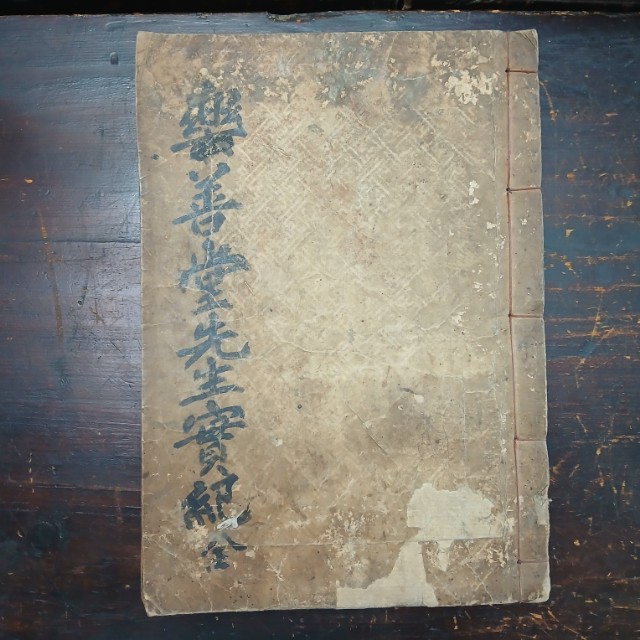 樂善堂先生實紀 全